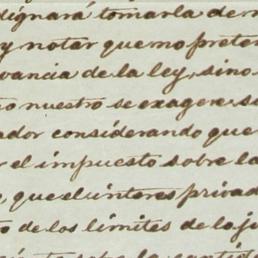 dignará tomarla de
y notar que no preten
vancia de la ley, sino
o nuestro se exagere, si
ador considerando que
r el impuesto sobre la
, que el interes privad
o de los límites de lo ju